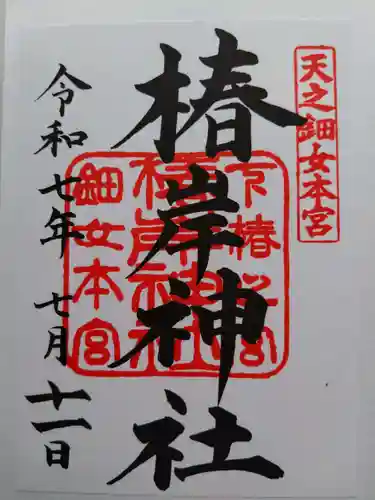 天之鈿女本宮
椿岸神社
下椿之宮
椿岸神社
鈿女本宮
令和七年七月十一日